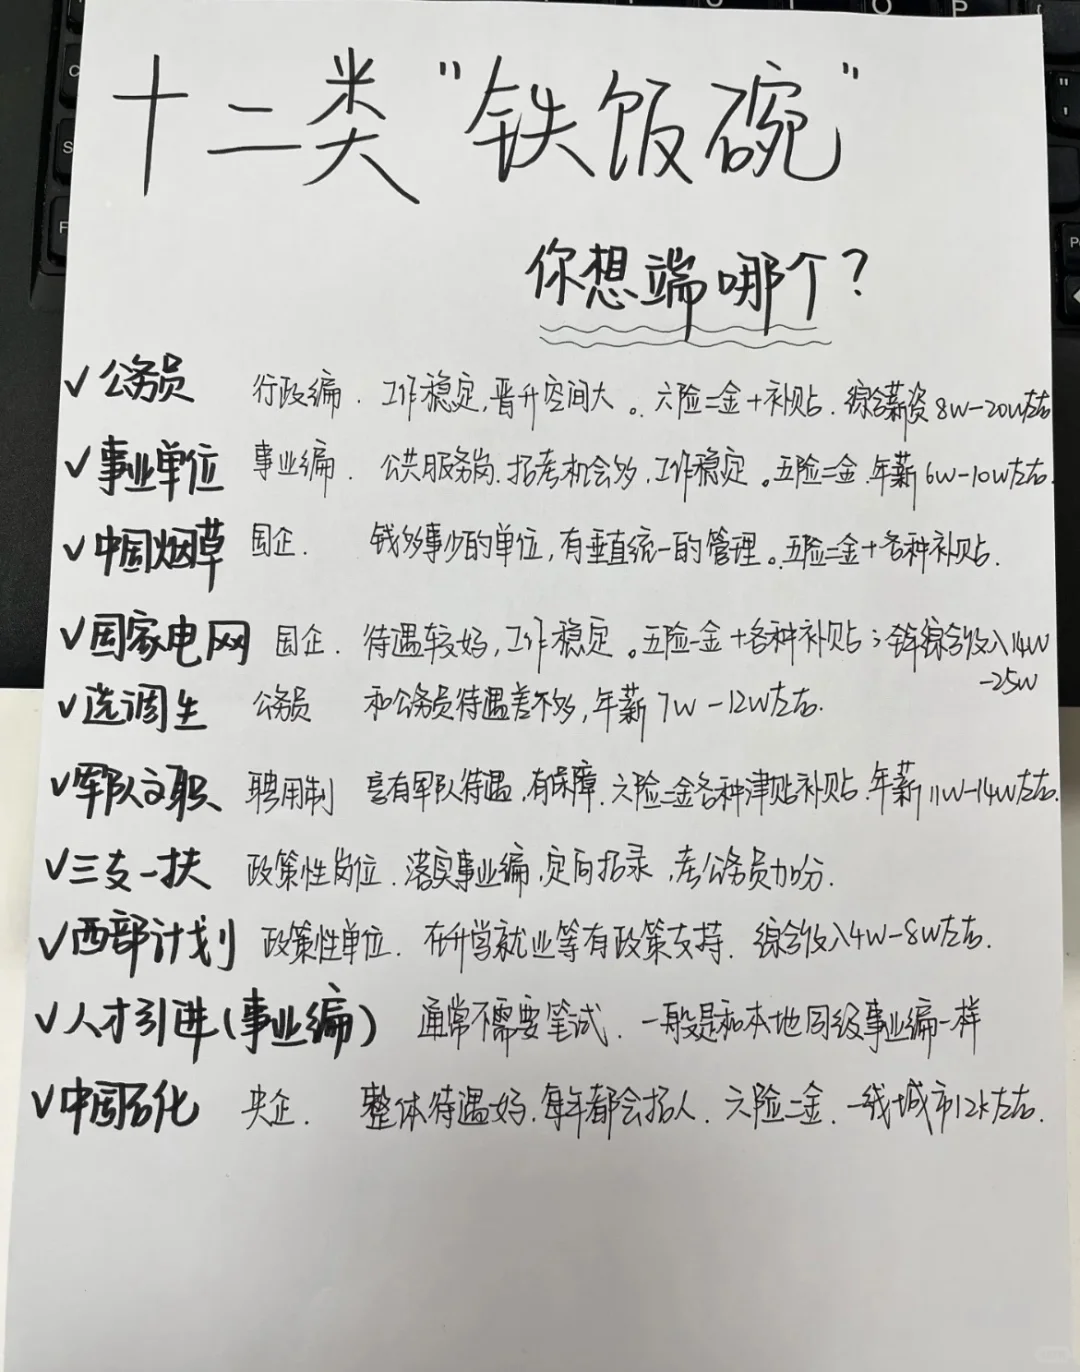 十二类“铁饭碗”
你想端哪个？
✓公务员 行政编. 工作稳定,晋升空间大。六险二金+补贴. 综合薪资8W-20W左右
✓事业单位 事业编. 公共服务岗.招考机会多,工作稳定。五险二金.年薪6W-10W左右.
✓中国烟草 国企. 钱多事少的单位,有垂直统一的管理。五险二金+各种补贴.
✓国家电网 国企. 待遇较好,工作稳定。五险一金+各种补贴;全年综合收入14W
-25W
✓选调生 公务员 和公务员待遇差不多,年薪7W-12W左右.
✓军队文职 聘用制 享有军队待遇,有保障.六险二金各种津贴补贴.年薪11W-14W左右.
✓三支一扶 政策性岗位.落实事业编,定向招录,考公务员加分.
✓西部计划 政策性单位. 在升学就业等有政策支持. 综合收入4W-8W左右.
✓人才引进(事业编) 通常不需要笔试. 一般是和本地同级事业编一样
✓中国石化 央企. 整体待遇好.每年都会招人. 六险二金. 一线城市12k左右.